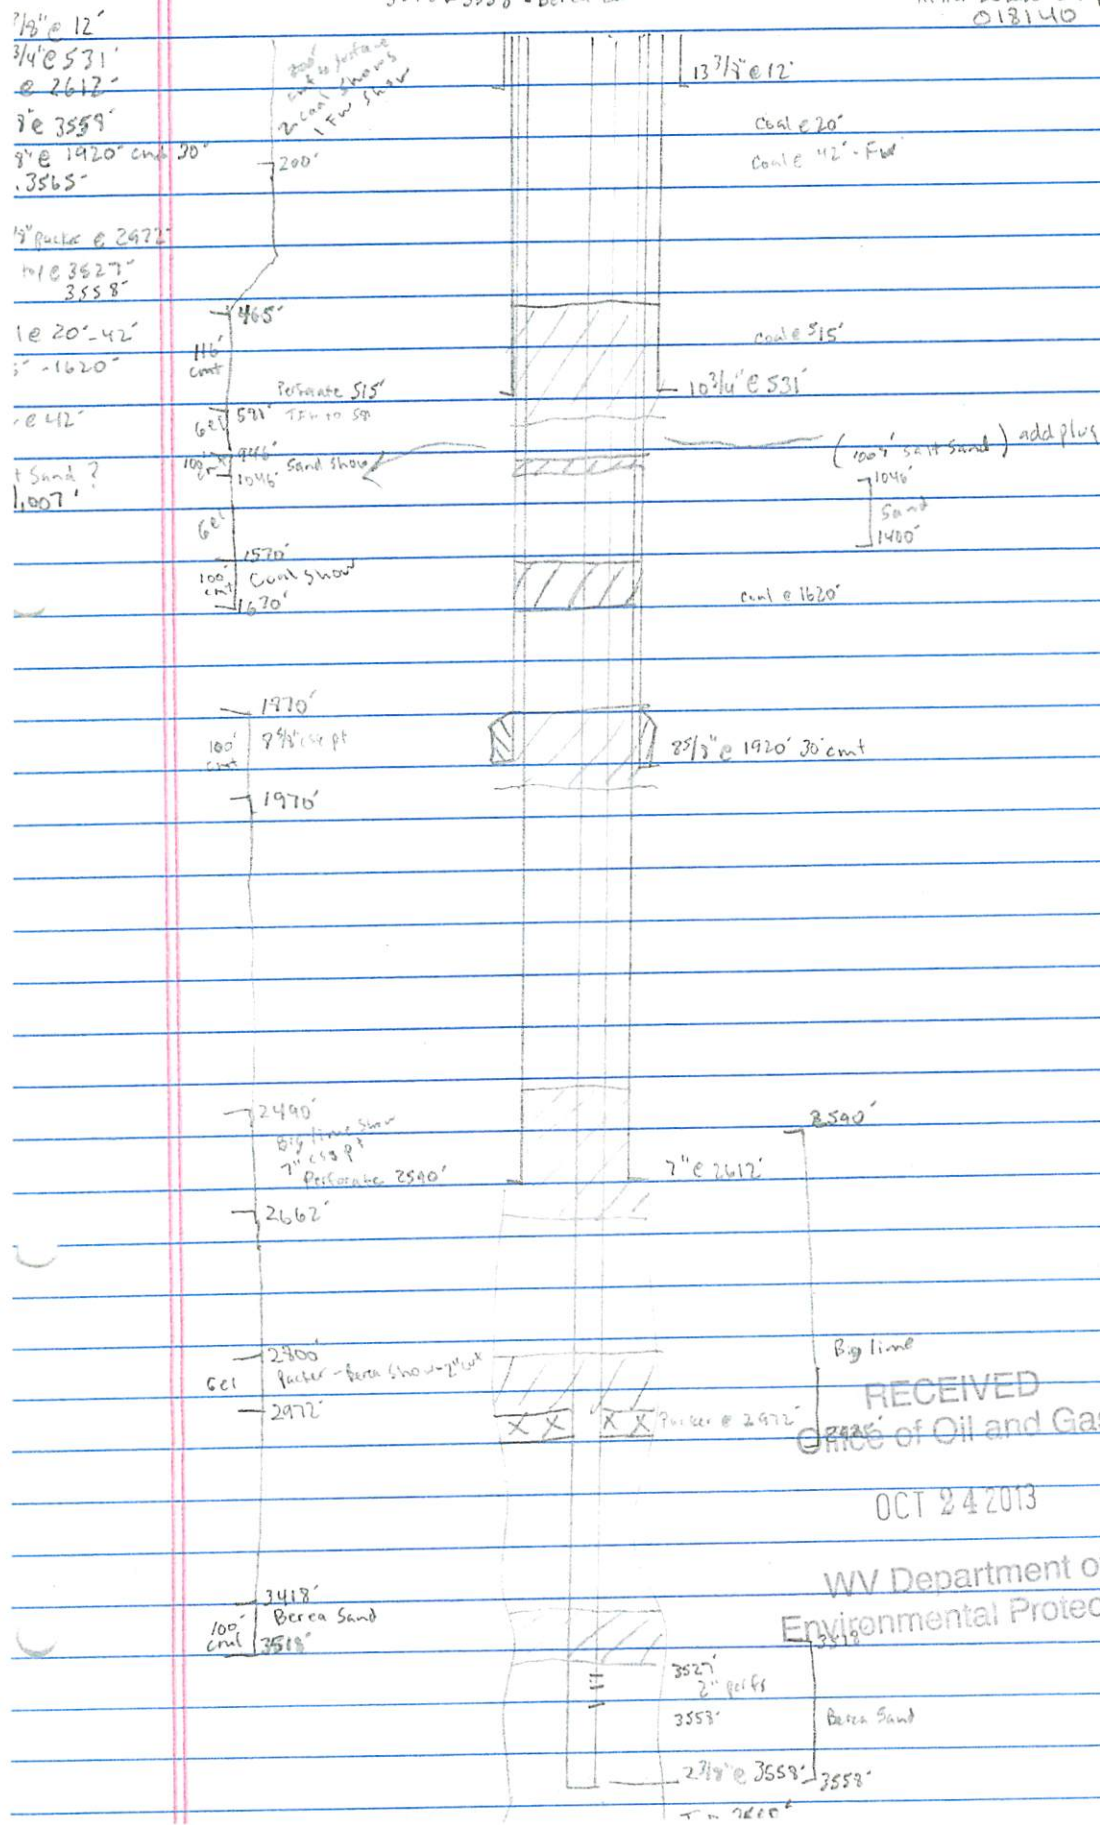 018140
7/8" @ 12'
3/4" @ 531'
@ 2612'
8" @ 3558'
8" @ 1920' cmt 30'
.3565'
packer @ 2972'
@ 3527'
3558'
l @ 20'-42'
-1620'
@ 42'
t Sand ?
1,007'
200'
cmt to surface
2 coal shows
1 FW show
200'
465'
116'
cmt
Perforate 515'
581'
Gel
946'
100'
Sand show
1046'
Gel
1570'
100'
cmt
Coal show
1670'
1870'
100'
cmt
8 5/8" csg pt
1970'
2490'
Big lime show
7" csg pt
Perforate 2590'
2662'
2800'
Gel
Packer - Berea show - 2" cut
2972'
3418'
100'
cmt
Berea Sand
3518'
13 3/8" @ 12'
Coal @ 20'
Coal @ 42' - FW
Coal @ 515'
10 3/4" @ 531'
(1007' salt sand) add plug
1046'
Sand
1400'
coal @ 1620'
8 5/8" @ 1920' 30' cmt
2590'
7" @ 2612'
Big lime
Packer @ 2972'
RECEIVED
Office of Oil and Gas
OCT 24 2013
WV Department o
Environmental Protec
3518'
3527'
2" perfs
3558'
Berea Sand
2 3/8" @ 3558'
3558'